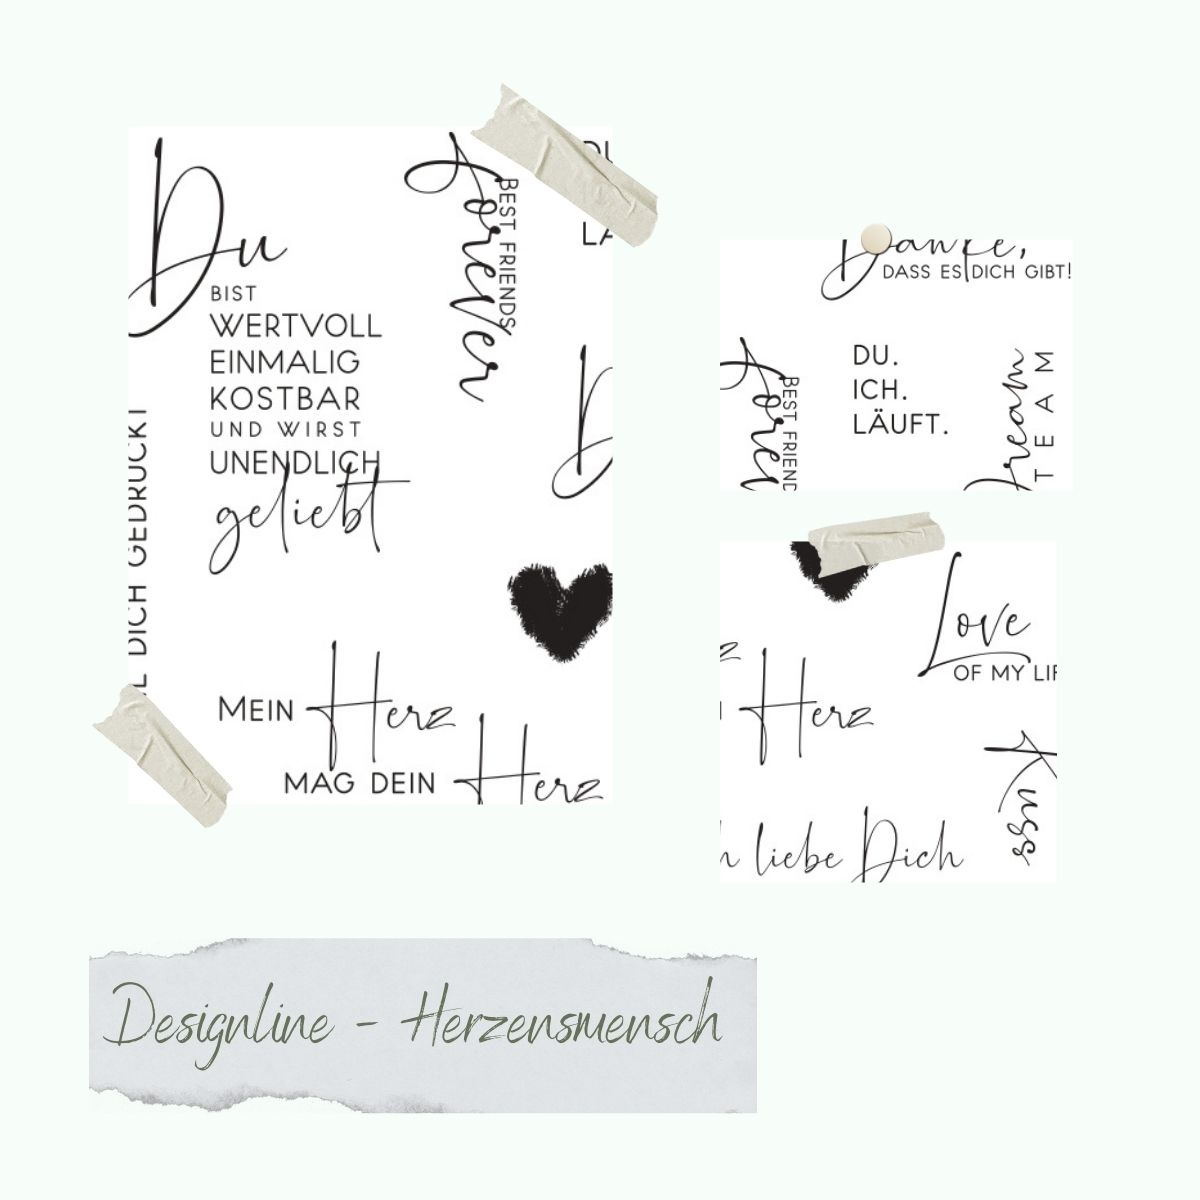 Du
BIST
WERTVOLL
EINMALIG
KOSTBAR
UND WIRST
UNENDLICH
geliebt
BEST FRIENDS
Forever
LA
DICH GEDRUCKT
MEIN Herz
MAG DEIN Herz
Danke,
DASS ES DICH GIBT!
BEST FRIEND
DU.
ICH.
LÄUFT.
Dream
TEAM
Love
OF MY LIF
Herz
Kuss
h liebe Dich
Designline - Herzensmensch